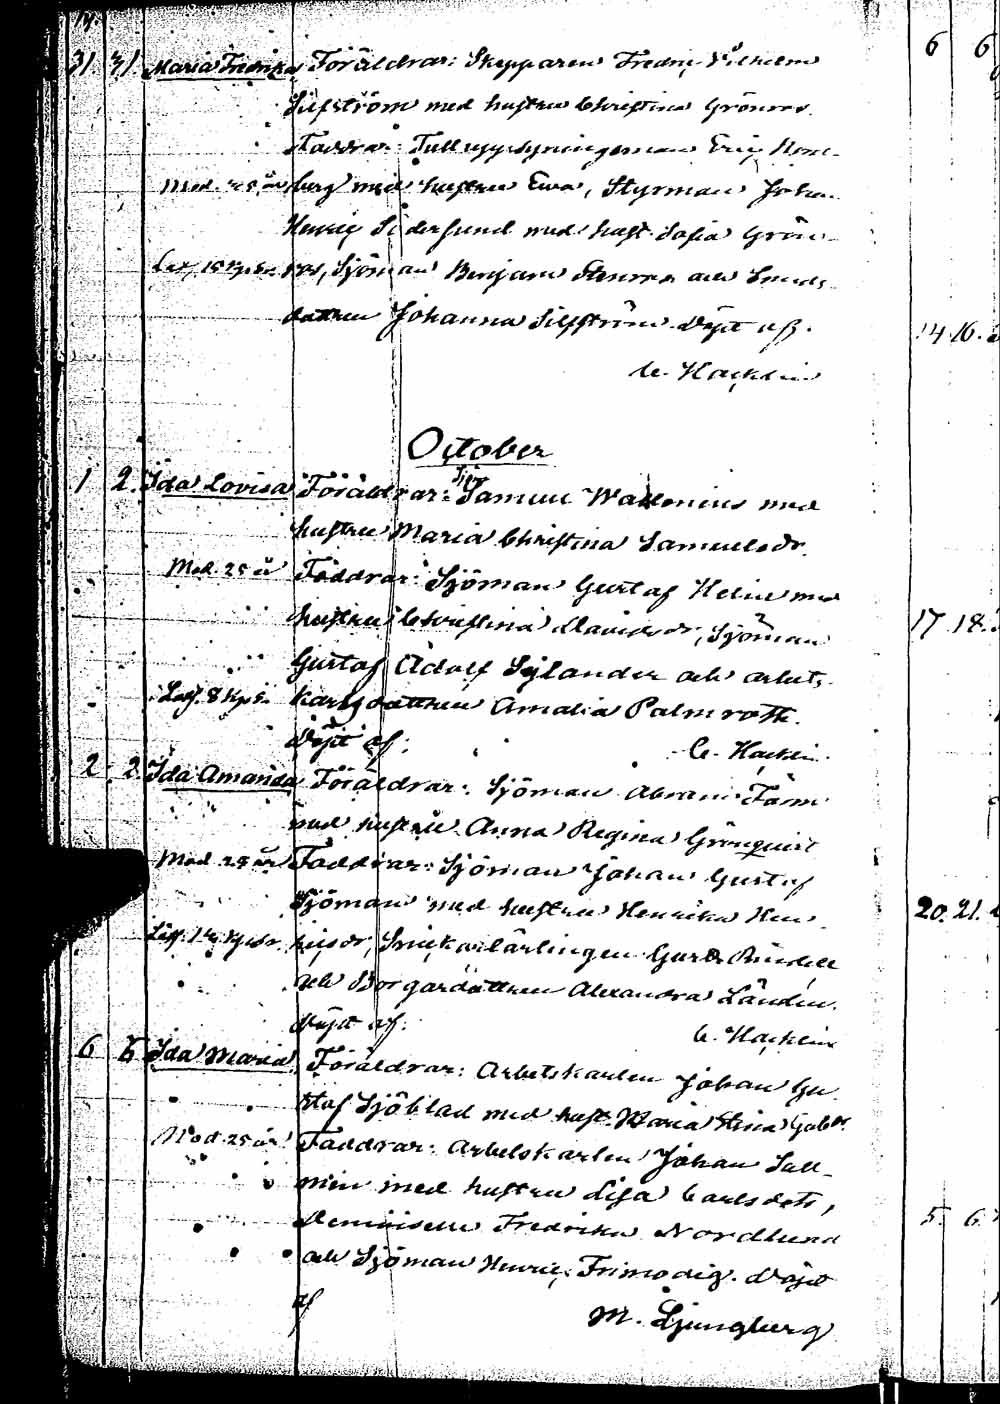 31 31 Maria Fredrika Föräldrar: Skepparen Fredric Vilhelm
Silfström med hustru Christina Grönroos.
Faddrar: Tulluppsyningsman Eric Nord-
Mod. 25 år berg med hustru Ewa, Styrman Johan
Henric Södersund med hust. Sofia Grön-
roos, Sjöman Benjam Stenroos och Smeds
dottren Johanna Silfström Döpt af
C. Hacklin
October
1 2. Ida Lovisa Föräldrar: Samuel Wallenius med
hustru Maria Christina Samuelsdr.
Mod. 25 år Faddrar: Sjöman Gustaf Heine med
hustru Christina Davidsdr, Sjöman
Gustaf Adolf Sylander och arbets
Läsf. 8 kps. karlsdottren Amalia Palmroth.
Döpt af: C. Hacklin
2 2 Ida Amanda Föräldrar: Sjöman Abram Färm
med hustru Anna Regina Grönquist
Mod 25 år Faddrar: Sjöman Johan Gustaf
Sjöman med hustru Henrika Hen
Snickarlärlingen Gust.
och Borgardottren Alexandra Ländén.
Döpt af: C. Hacklin
6 6 Ida Maria Föräldrar: Arbetskarlen Johan Gu
staf Sjöblad med hust. Maria Stina Gabr.
Mod 25 år Faddrar: Arbetskarlen Johan Sall-
min med hustru Lisa Carlsdotr,
Demoiselle Fredrika Nordlund
och Sjöman Henric Frimodig. Döpt
af
M. Ljungberg
6 6
14 16.
17 18.
20. 21.
5. 6.